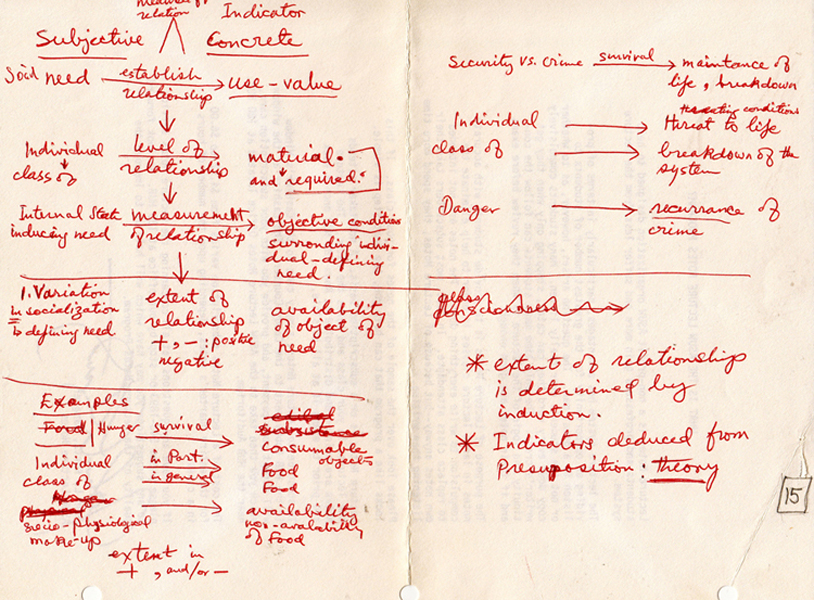 measure of
relation
Indicator
Subjective Concrete
Soid need establish relationship use-value
Individual level of relationship material.
class of and required.
Internal State measurement objective conditions
inducing need of relationship surronding indivi-
dual-defining
need.
1. Variation extent of availability
in socialization relationship of object of
defining need +, - : positive need
negative
Examples
Food | Hunger survival edibal
subsistence
consumable
objects
Individual in Part. Food
class of in general Food
physical
socio-physiological availability
make-up non-avalability
of Food
extent in
+, and/or -
Security vs. crime survival maintance of
life, breakdown
conditions
Individual Threat to life
class of breakdown of the
system
Danger recurrance of
crime
* extent of relationships
is determined by
induction.
* Indicators deduced from
Presuposition: theory
15